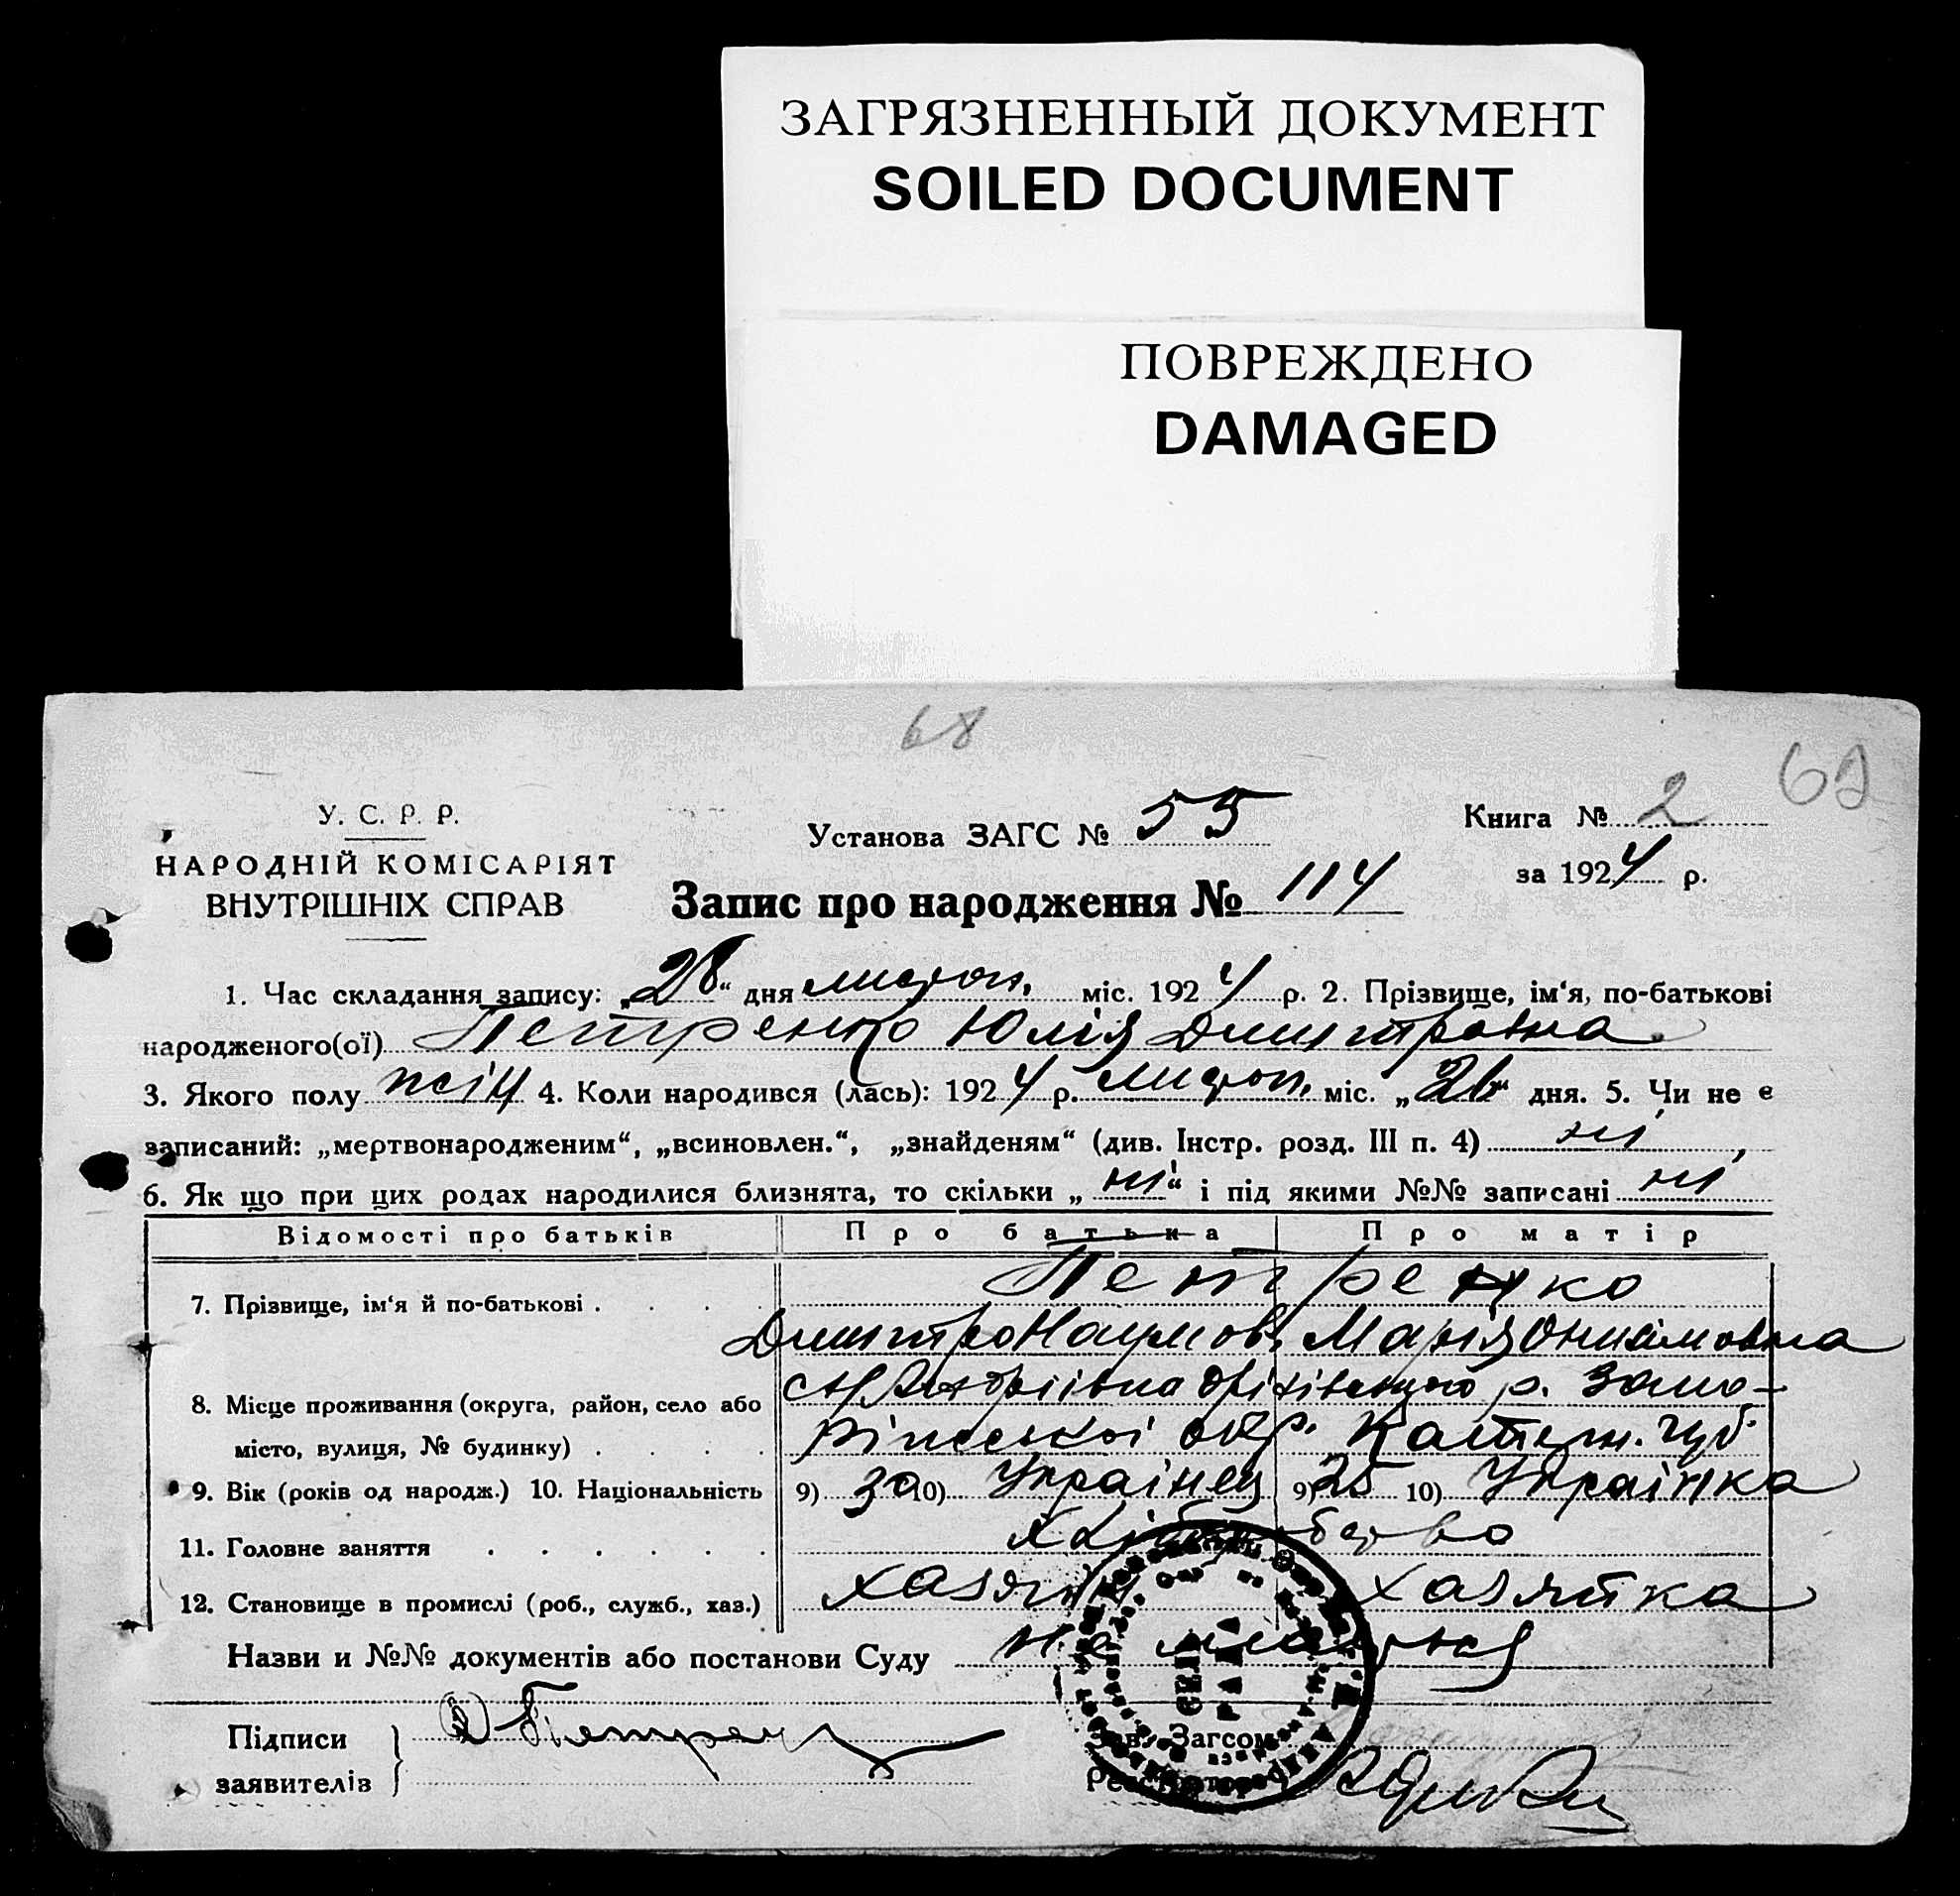 ЗАГРЯЗНЕННЫЙ ДОКУМЕНТ
SOILED DOCUMENT
ПОВРЕЖДЕНО
DAMAGED
68
69
У. С. Р. Р.
НАРОДНІЙ КОМІСАРІЯТ
ВНУТРІШНІХ СПРАВ
Установа ЗАГС № 55
Книга № 2
за 1924 р.
Запис про народження № 114
1. Час складання запису: „28“ дня листоп. міс. 1924 р. 2. Прізвище, ім‘я, по-батькові
народженого(ої) Петренко Юлія Дмитровна
3. Якого полу жін 4. Коли народився (лась): 1924 р. листоп. міс. „26“ дня. 5. Чи не є
записаний: „мертвонародженим“, „всиновлен.“, „знайденям“ (див. Інстр. розд. III п. 4) ні
6. Як що при цих родах народилися близнята, то скільки „ні“ і під якими №№ записані ні
Відомості про батьків Про батька Про матір
7. Прізвище, ім‘я й по-батькові . . . . Петренко
Дмитро Наумов. Марія Онисимовна
8. Місце проживання (округа, район, село або
місто, вулиця, № будинку) . . . .
с. Андріївна Оріхівського р. Запо-
ріжської окр. Катерин. губ.
9. Вік (років од народж.) 10. Національність 9) 30 10) Українец 9) 25 10) Українка
11. Головне заняття . . . . . . Хліборобство
12. Становище в промислі (роб., служб., хаз.) хазяїн хазяйка
Назви и №№ документів або постанови Суду
Підписи
заявителів
Д Петренко
Зав. Загсом
Реєстратор
СІЛ
РАДА